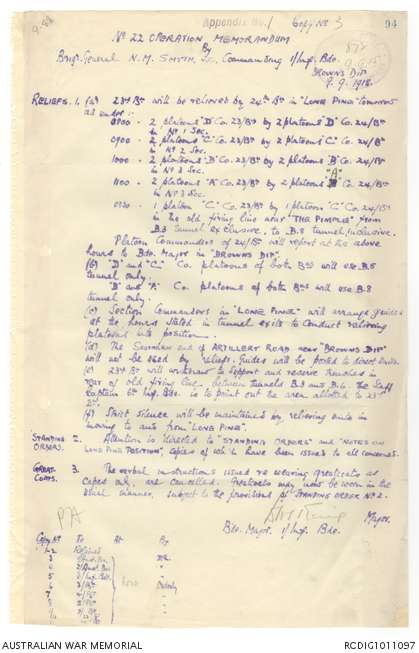 Appendix No. 1 Copy No 3 94
No 22 OPERATION MEMORANDUM
By
Brig. General N.M. SMYTH, V.C. Commanding 1/Inf. Bde.
BROWN'S DIP
9.9.1915.
RELIEFS. 1. (a) 23rd Bn will be relieved by 24th Bn in "LONE PINE" tomorrow
as under:-
0800 - 2 platoons "D" Co. 23/Bn by 2 platoons "D" Co. 24/Bn
in No 1 Sec.
0900 - 2 platoons "C" Co. 23/Bn by 2 platoons "C" Co. 24/Bn
in No 2 Sec.
1000 - 2 platoons "B" Co. 23/Bn by 2 platoons "B" Co. 24/Bn
in No 3 Sec.
"A"
1100 - 2 platoons "A" Co. 23/Bn by 2 platoons Co. 24/Bn
in No 3 Sec.
- 1 platoon "C" Co. 23/Bn by 1 platoon "C" Co. 24/Bn
in the old firing line near "THE PIMPLE" from
B.3 tunnel exclusive, to B.8 tunnel, inclusive.
Platoon Commanders of 24/Bn will report at the above
hours to Bde. Major in "BROWN'S DIP".
(b) "D" and "C" Co. platoons of both Bns will use B.5
tunnel only.
"B" and "A" Co. platoons of both Bns will use B.8
tunnel only.
(c) Section Commanders in "LONE PINE" will arrange guides
at the hours stated in tunnel exits to conduct relieving
platoons into position.
(d) The Southern end of ARTILLERY ROAD near "BROWN'S DIP"
will not be used by reliefs. Guides will be posted to direct units.
(e) 23rd Bn will withdraw to support and reserve trenches in
rear of old firing line between tunnels B.3 and B.6. The Staff
Captain 6th Inf. Bde. is to point out the area allotted to 23rd
Bn.
(f) Strict silence will be maintained by relieving units in
moving to and from "LONE PINE".
STANDING 2. Attention is directed to "STANDING ORDERS" and "NOTES ON
ORDERS. LONE PINE POSITION", copies of which have been issued to all concerned.
GREAT 3. The verbal instructions issued re wearing greatcoats as
COATS. capes are cancelled. Greatcoats may now be worn in the
usual manner, subject to the provisions of STANDING ORDER No 2.
Major.
Bde. Major. 1/Inf. Bde.
Copy No To At By
1-2 Retained
3
4
5
6
7
8
9
Orderly
AUSTRALIAN WAR MEMORIAL RCDIG1011097